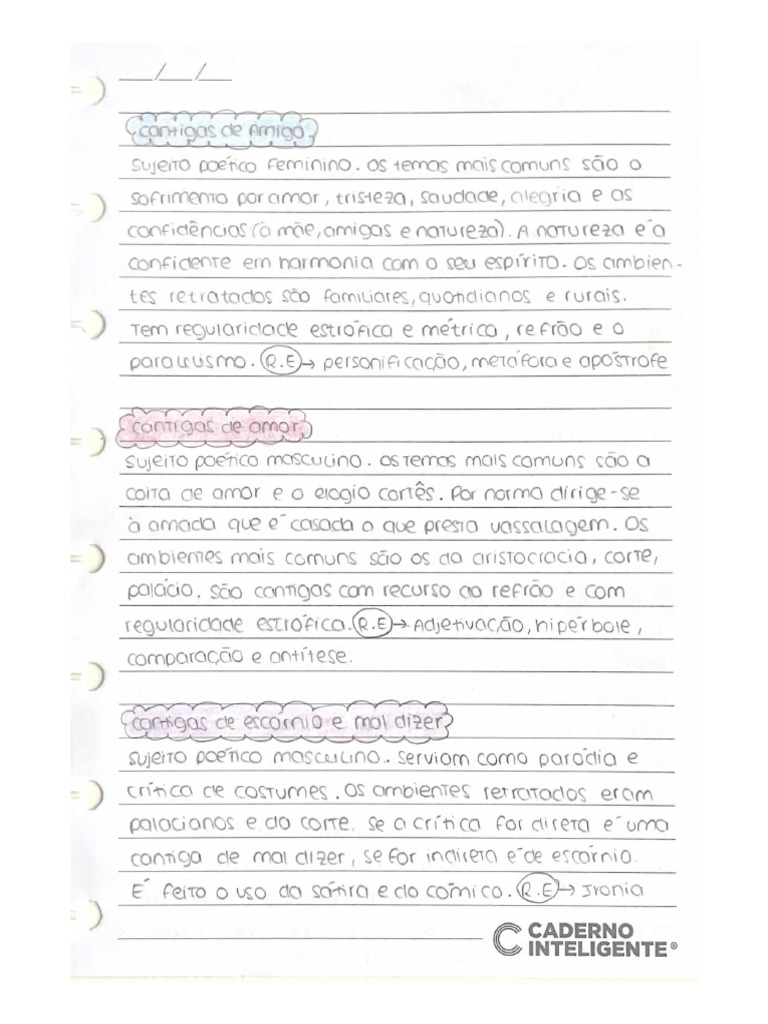 __/__/__
Cantigas de Amigo
Sujeito poético feminino. Os temas mais comuns são o
sofrimento por amor, tristeza, saudade, alegria e as
confidências (à mãe, amigas e natureza). A natureza é a
confidente em harmonia com o seu espírito. Os ambien-
tes retratados são familiares, quotidianos e rurais.
Tem regularidade estrófica e métrica, refrão e o
paralelismo. R.E → personificação, metáfora e apóstrofe
cantigas de amor
Sujeito poético masculino. Os temas mais comuns são a
coita de amor e o elogio cortês. Por norma dirige-se
à amada que é casada o que presta vassalagem. Os
ambientes mais comuns são os da aristocracia, corte,
palácio. São cantigas com recurso ao refrão e com
regularidade estrófica. R.E → Adjetivação, hipérbole,
comparação e antítese.
cantigas de escárnio e mal dizer
Sujeito poético masculino. Serviam como paródia e
crítica de costumes. Os ambientes retratados eram
palacianos e da corte. Se a crítica for direta é uma
cantiga de mal dizer, se for indireta é de escárnio.
É feito o uso da sátira e do cómico. R.E → Ironia
CADERNO
INTELIGENTE®